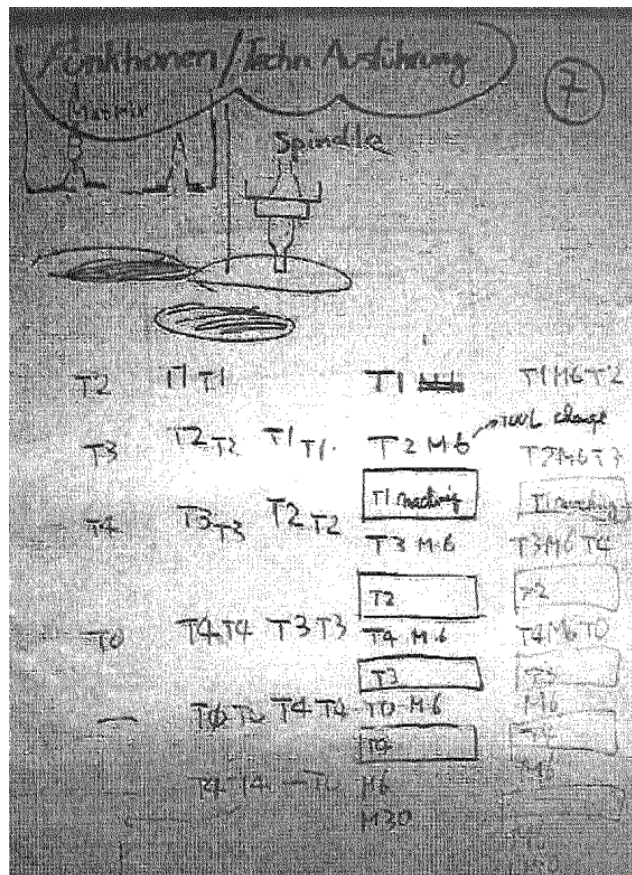 Funktionen/Techn Ausführung
7
Matrix
Spindle
T2 T1 T1 T1 T1M6T2
T3 T2 T2 T1 T1. T2 M6 → Tool change T2M6T3
T1 maching T1 maching
T4 T3 T3 T2 T2 T3 M6 T3M6 T4
T2 T2
T0 T4 T4 T3 T3 T4 M6 T4M6T0
T3 T3
— T0 T4 T4 T0 M6 M6
T4 T4
T4 T4 M6 M6
M30